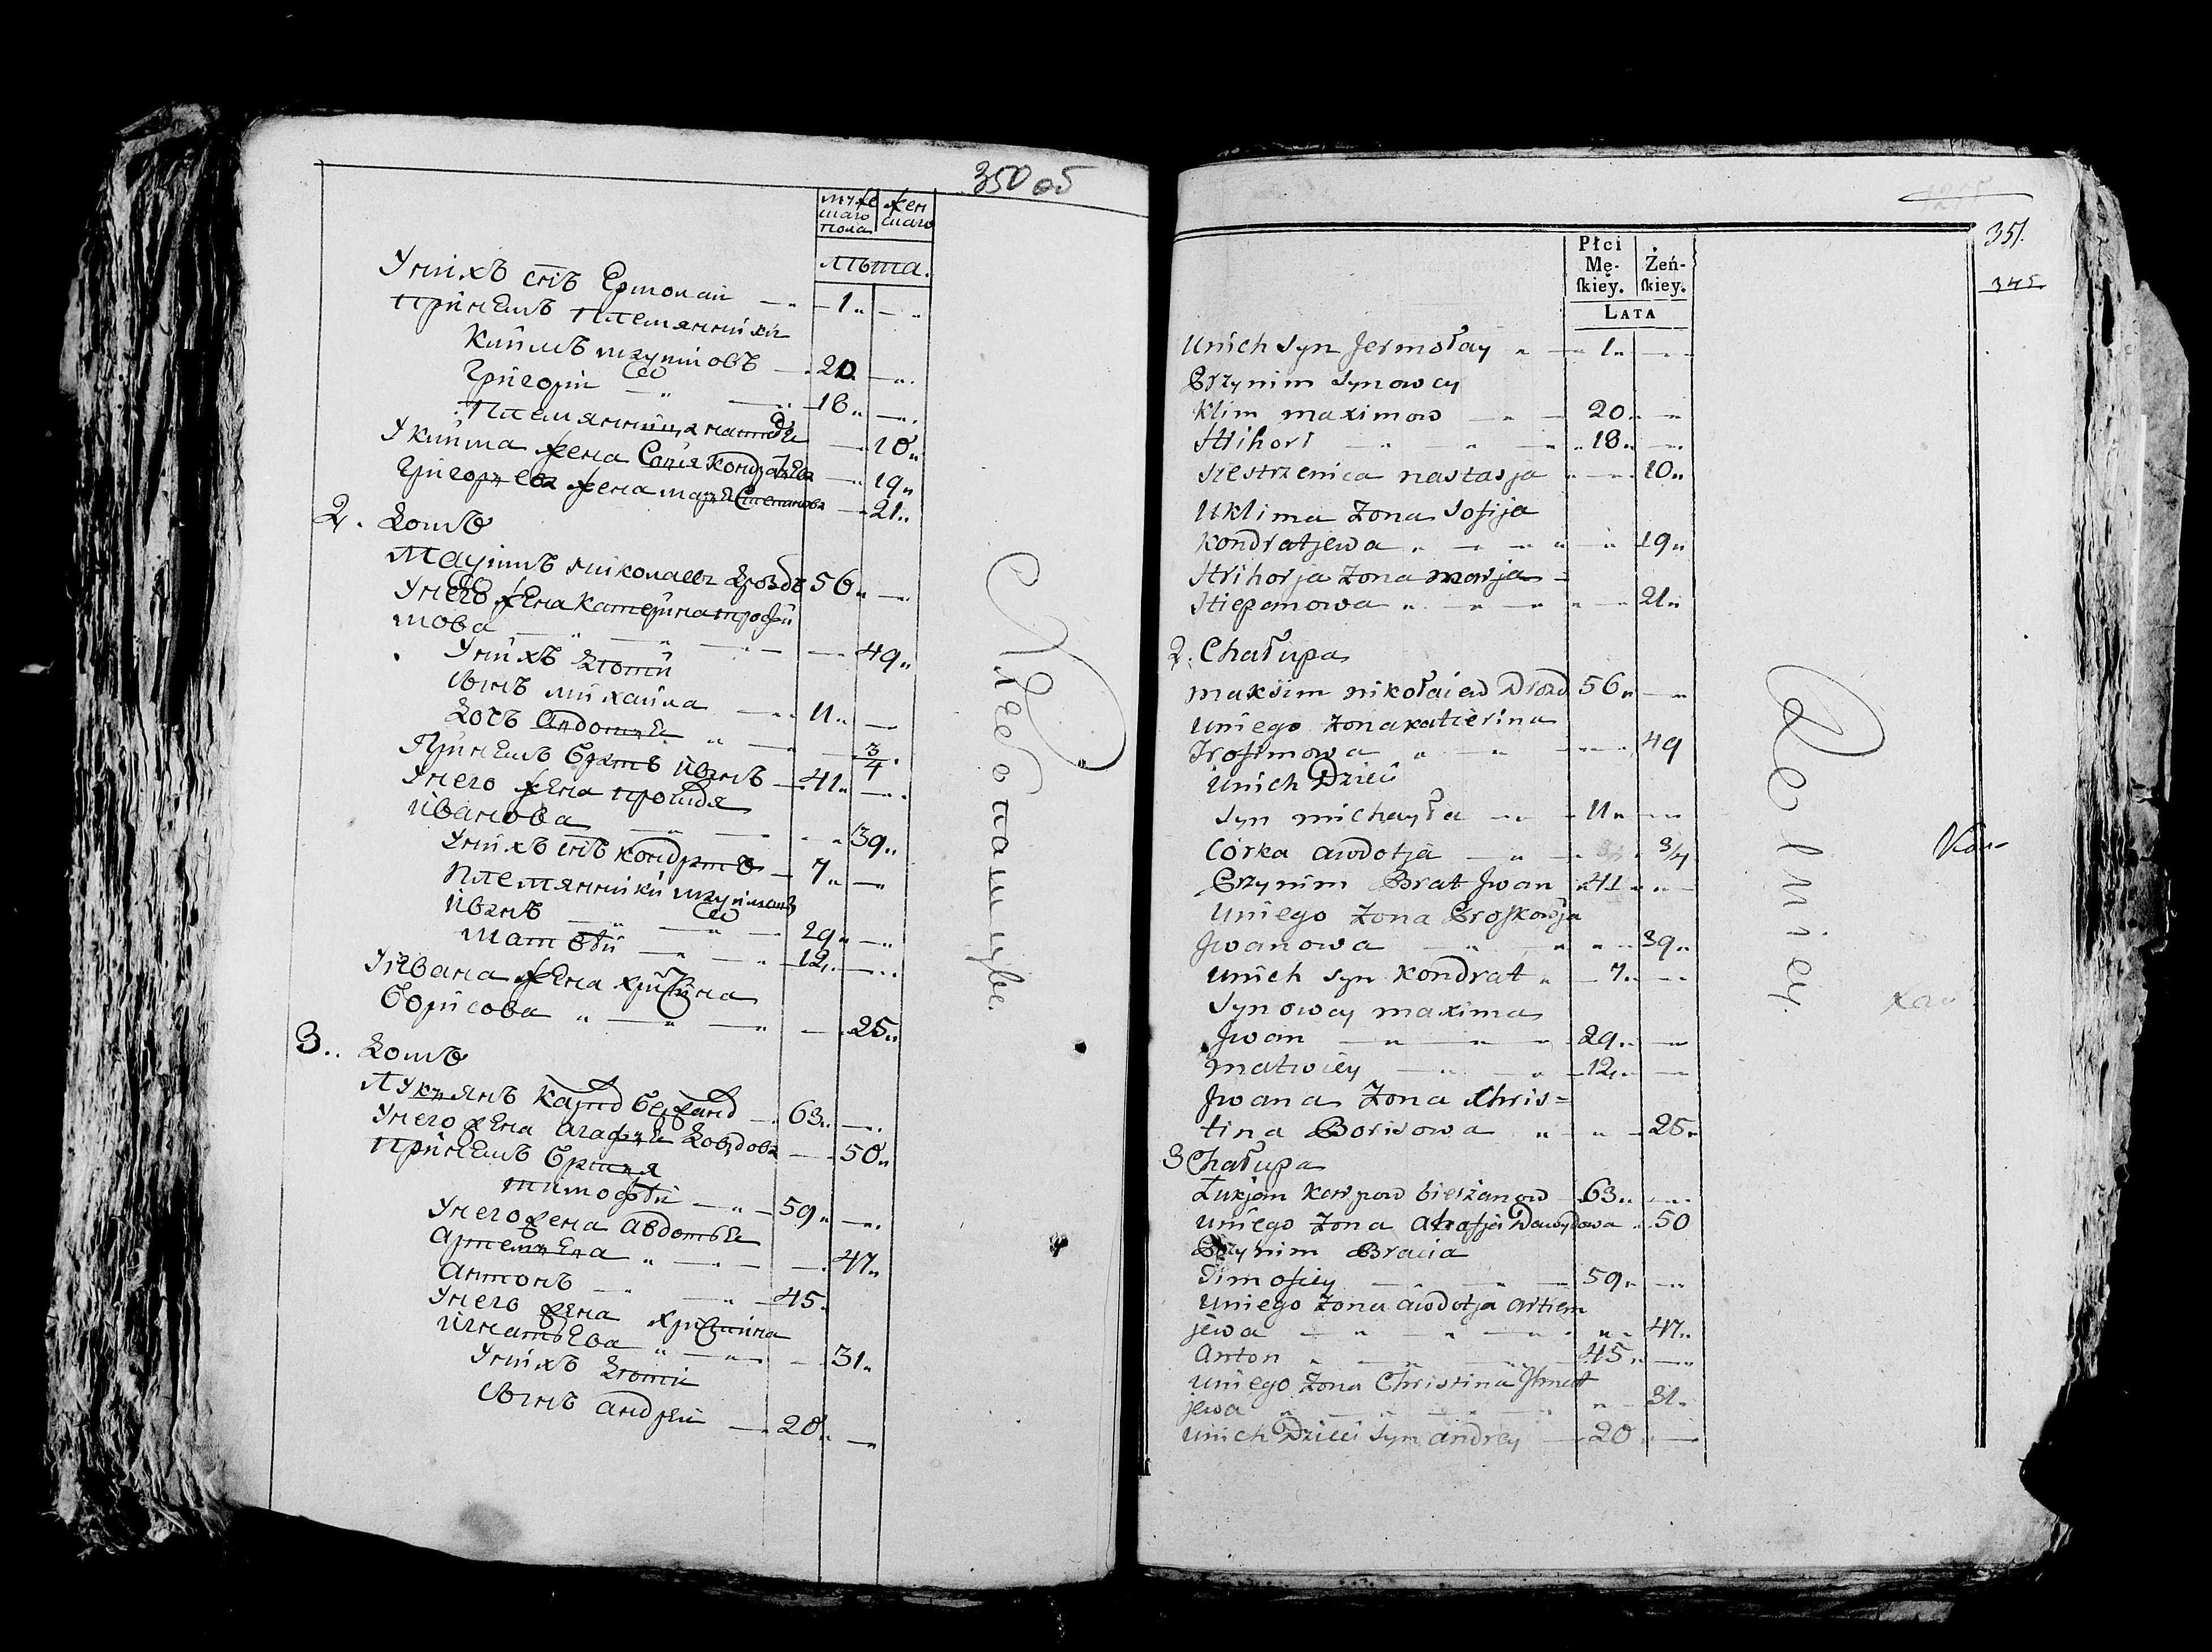 350 об
муже
скаго
пола
жен
скаго
лѣта.
У нихъ сн҃ъ Ермолай — 1 —
При немъ племянники
Климъ маѯимовъ — 20 —
Григорий — 18 —
Племянница настасЬя — 10
У клима жена Софія кондратЬева — 19
ГригорЬева жена марЬя Степанова — 21
2. Домъ
Маѯимъ николаевъ Дроздъ 56 —
У него жена катерина трофи
мова — 49
У нихъ Дѣти
сынъ михайла — 11 —
Дочь АвдотЬя — 3/4
При немъ братъ иванъ — 41 —
У него жена проскдя
иванова — 39
У нихъ сн҃ъ кондратъ — 7 —
племянники маѯимовы
иванъ — 29 —
матвѣй — 12 —
У ивана жена христина
борисова — 25
3. Домъ
ЛукЬянъ Карпов — 63 —
У него жена агафЬя Давыдова — 50
При немъ братья
тимофѣй — 59 —
У него жена авдотья
артемЬева — 47
антонъ — 45
У него жена христина
игнатьева — 31
У нихъ Дѣти
сынъ андрей — 20 —
Хлебопашцы.
351.
345
Płci
Mę-
ſkiey.
Żeń-
ſkiey.
LATA
Unich syn Jermołay — 1 —
Przynim synowcy
Klim maximow — 20 —
Hrihori — 18 —
siestrzenica nastasja — 10
Uklima żona Sofija
kondratjewa — 19
Hrihorja żona marja =
Stiepanowa — 21
2. Chałupa
maksim nikołaiew Drozd 56 —
uniego żona katierina
Trofimowa — 49
Unich Dzieci
syn michayła — 11 —
Córka awdotja — 3/4
Przynim Brat Jwan 41 —
Uniego żona Proskowja
Jwanowa — 39
Unich syn kondrat — 7 —
synowcy maxima
Jwan — 29 —
matwiey — 12 —
Jwana żona Chris=
tina Borisowa — 25
3 Chałupa
Łukjan karpow bierżanow 63 —
uniego żona ahafja Dawydowa 50
Przynim Bracia
Timofiey — 59 —
Uniego żona awdotja artiem
jewa — 47
anton — 45 —
uniego żona Christina Jhnat
jewa — 31
unich Dzieci syn andrey — 20 —
Rolniey.